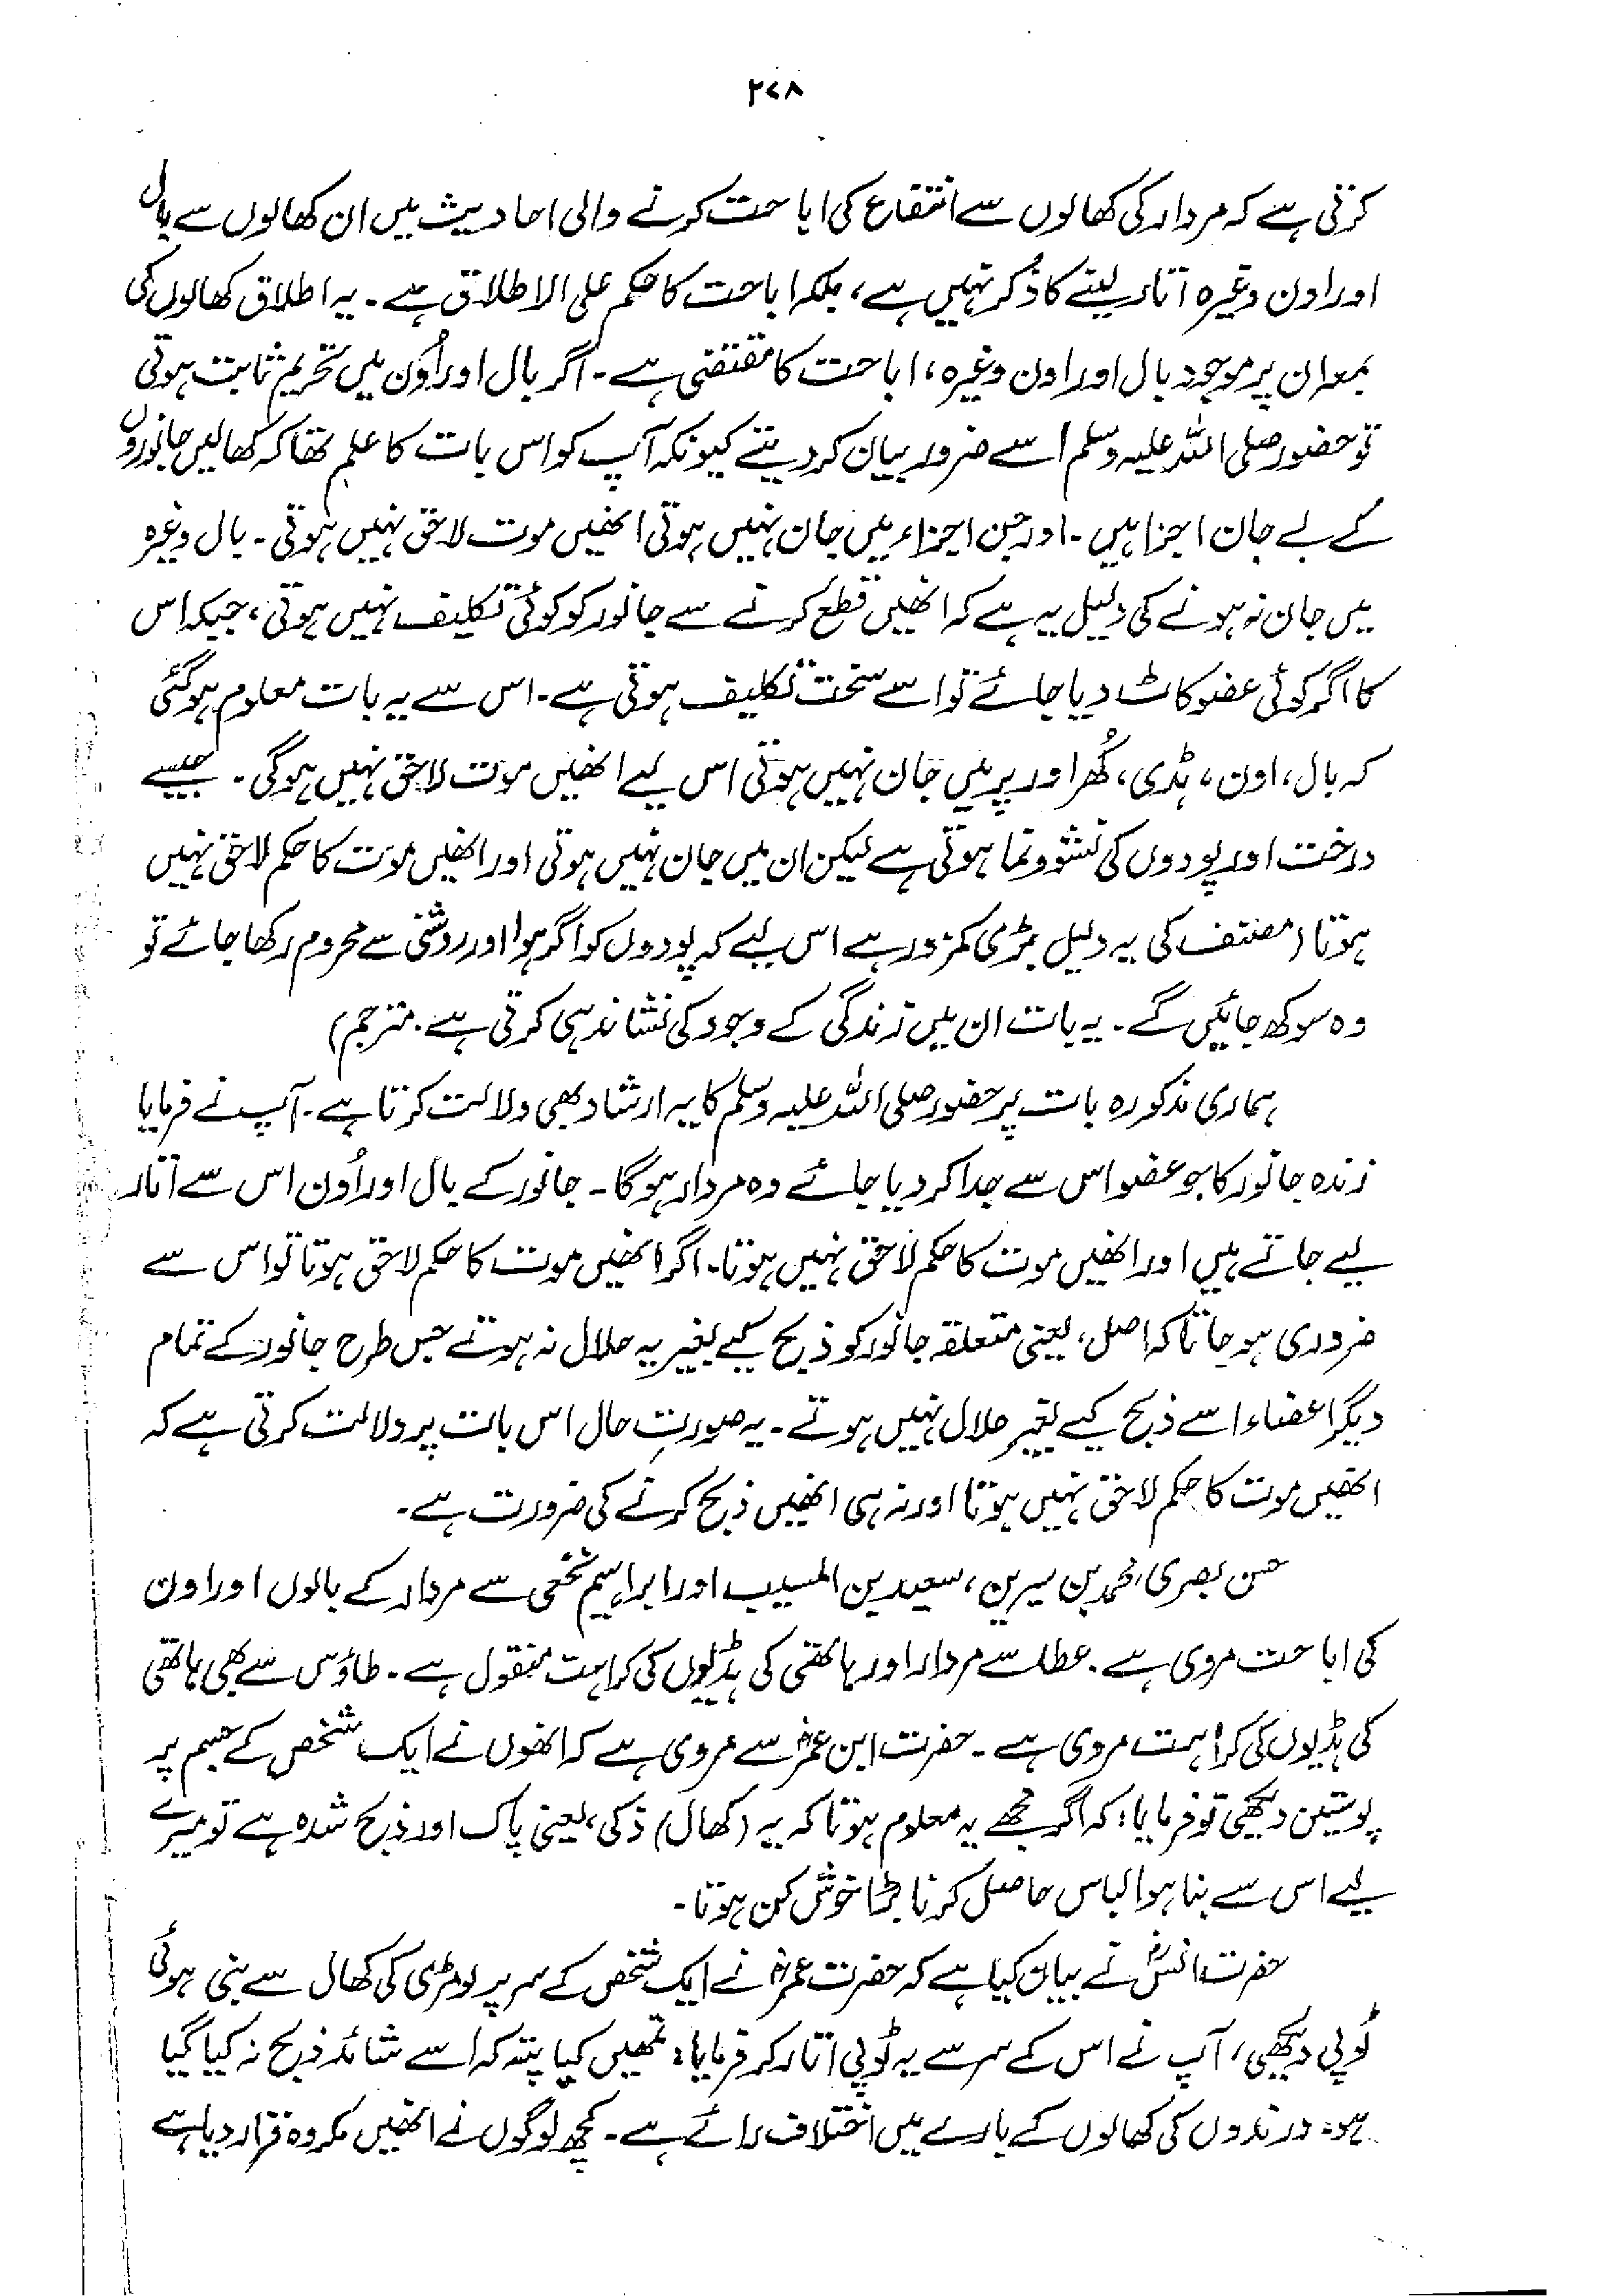 ۲۷۸
کرتی ہے کہ مردار کی کھالوں سے انتفاع کی اباحت کرنے والی احادیث میں ان کھالوں سے بال
اور اون وغیرہ اتار لینے کا ذکر نہیں ہے، بلکہ اباحت کا حکم علی الاطلاق ہے۔ یہ اطلاق کھالوں کی
بمعہ ان پر موجود بال اور اون وغیرہ، اباحت کا مقتضی ہے۔ اگر بال اور اُون میں تحریم ثابت ہوتی
تو حضور صلی اللہ علیہ وسلم اسے ضرور بیان کر دیتے کیونکہ آپ کو اس بات کا علم تھا کہ کھالیں جانوروں
کے بے جان اجزا ہیں۔ اور جن اجزاء میں جان نہیں ہوتی انھیں موت لاحق نہیں ہوتی۔ بال وغیرہ
میں جان نہ ہونے کی دلیل یہ ہے کہ انھیں قطع کرنے سے جانور کو کوئی تکلیف نہیں ہوتی، جبکہ اس
کا اگر کوئی عضو کاٹ دیا جائے تو اسے سخت تکلیف ہوتی ہے۔ اس سے یہ بات معلوم ہو گئی
کہ بال، اون، ہڈی، کُھر اور پر میں جان نہیں ہوتی اس لیے انھیں موت لاحق نہیں ہوگی۔ جیسے
درخت اور پودوں کی نشوونما ہوتی ہے لیکن ان میں جان نہیں ہوتی اور انھیں موت کا حکم لاحق نہیں
ہوتا (مصنف کی یہ دلیل بڑی کمزور ہے اس لیے کہ پودوں کو اگر ہوا اور روشنی سے محروم رکھا جائے تو
وہ سوکھ جائیں گے۔ یہ بات ان میں زندگی کے وجود کی نشاندہی کرتی ہے۔ مترجم)
ہماری مذکورہ بات پر حضور صلی اللہ علیہ وسلم کا یہ ارشاد بھی دلالت کرتا ہے۔ آپ نے فرمایا
زندہ جانور کا جو عضو اس سے جدا کر دیا جائے وہ مردار ہوگا۔ جانور کے بال اور اُون اس سے اتار
لیے جاتے ہیں اور انھیں موت کا حکم لاحق نہیں ہوتا۔ اگر انھیں موت کا حکم لاحق ہوتا تو اس سے
ضروری ہو جاتا کہ اصل، یعنی متعلقہ جانور کو ذبح کیے بغیر یہ حلال نہ ہوتے جس طرح جانور کے تمام
دیگر اعضاء اسے ذبح کیے بغیر حلال نہیں ہوتے۔ یہ صورتِ حال اس بات پر دلالت کرتی ہے کہ
انھیں موت کا حکم لاحق نہیں ہوتا اور نہ ہی انھیں ذبح کرنے کی ضرورت ہے۔
حسن بصری، محمد بن سیرین، سعید بن المسیب اور ابراہیم نخعی سے مردار کے بالوں اور اون
کی اباحت مروی ہے۔ عطا سے مردار اور ہاتھی کی ہڈیوں کی کراہت منقول ہے۔ طاؤس سے بھی ہاتھی
کی ہڈیوں کی کراہت مروی ہے۔ حضرت ابن عمرؓ سے مروی ہے کہ انھوں نے ایک شخص کے جسم پر
پوستین دیکھی تو فرمایا: کہ اگر مجھے یہ معلوم ہوتا کہ یہ (کھال) ذکی، یعنی پاک اور ذبح شدہ ہے تو میرے
لیے اس سے بنا ہوا لباس حاصل کرنا بڑا خوش کن ہوتا۔
حضرت انسؓ نے بیان کیا ہے کہ حضرت عمرؓ نے ایک شخص کے سر پر لومڑی کی کھال سے بنی ہوئی
ٹوپی دیکھی، آپ نے اس کے سر سے یہ ٹوپی اتار کر فرمایا: تمھیں کیا پتہ کہ اسے شائد ذبح نہ کیا گیا
ہو؟ درندوں کی کھالوں کے بارے میں اختلاف رائے ہے۔ کچھ لوگوں نے انھیں مکروہ قرار دیا ہے